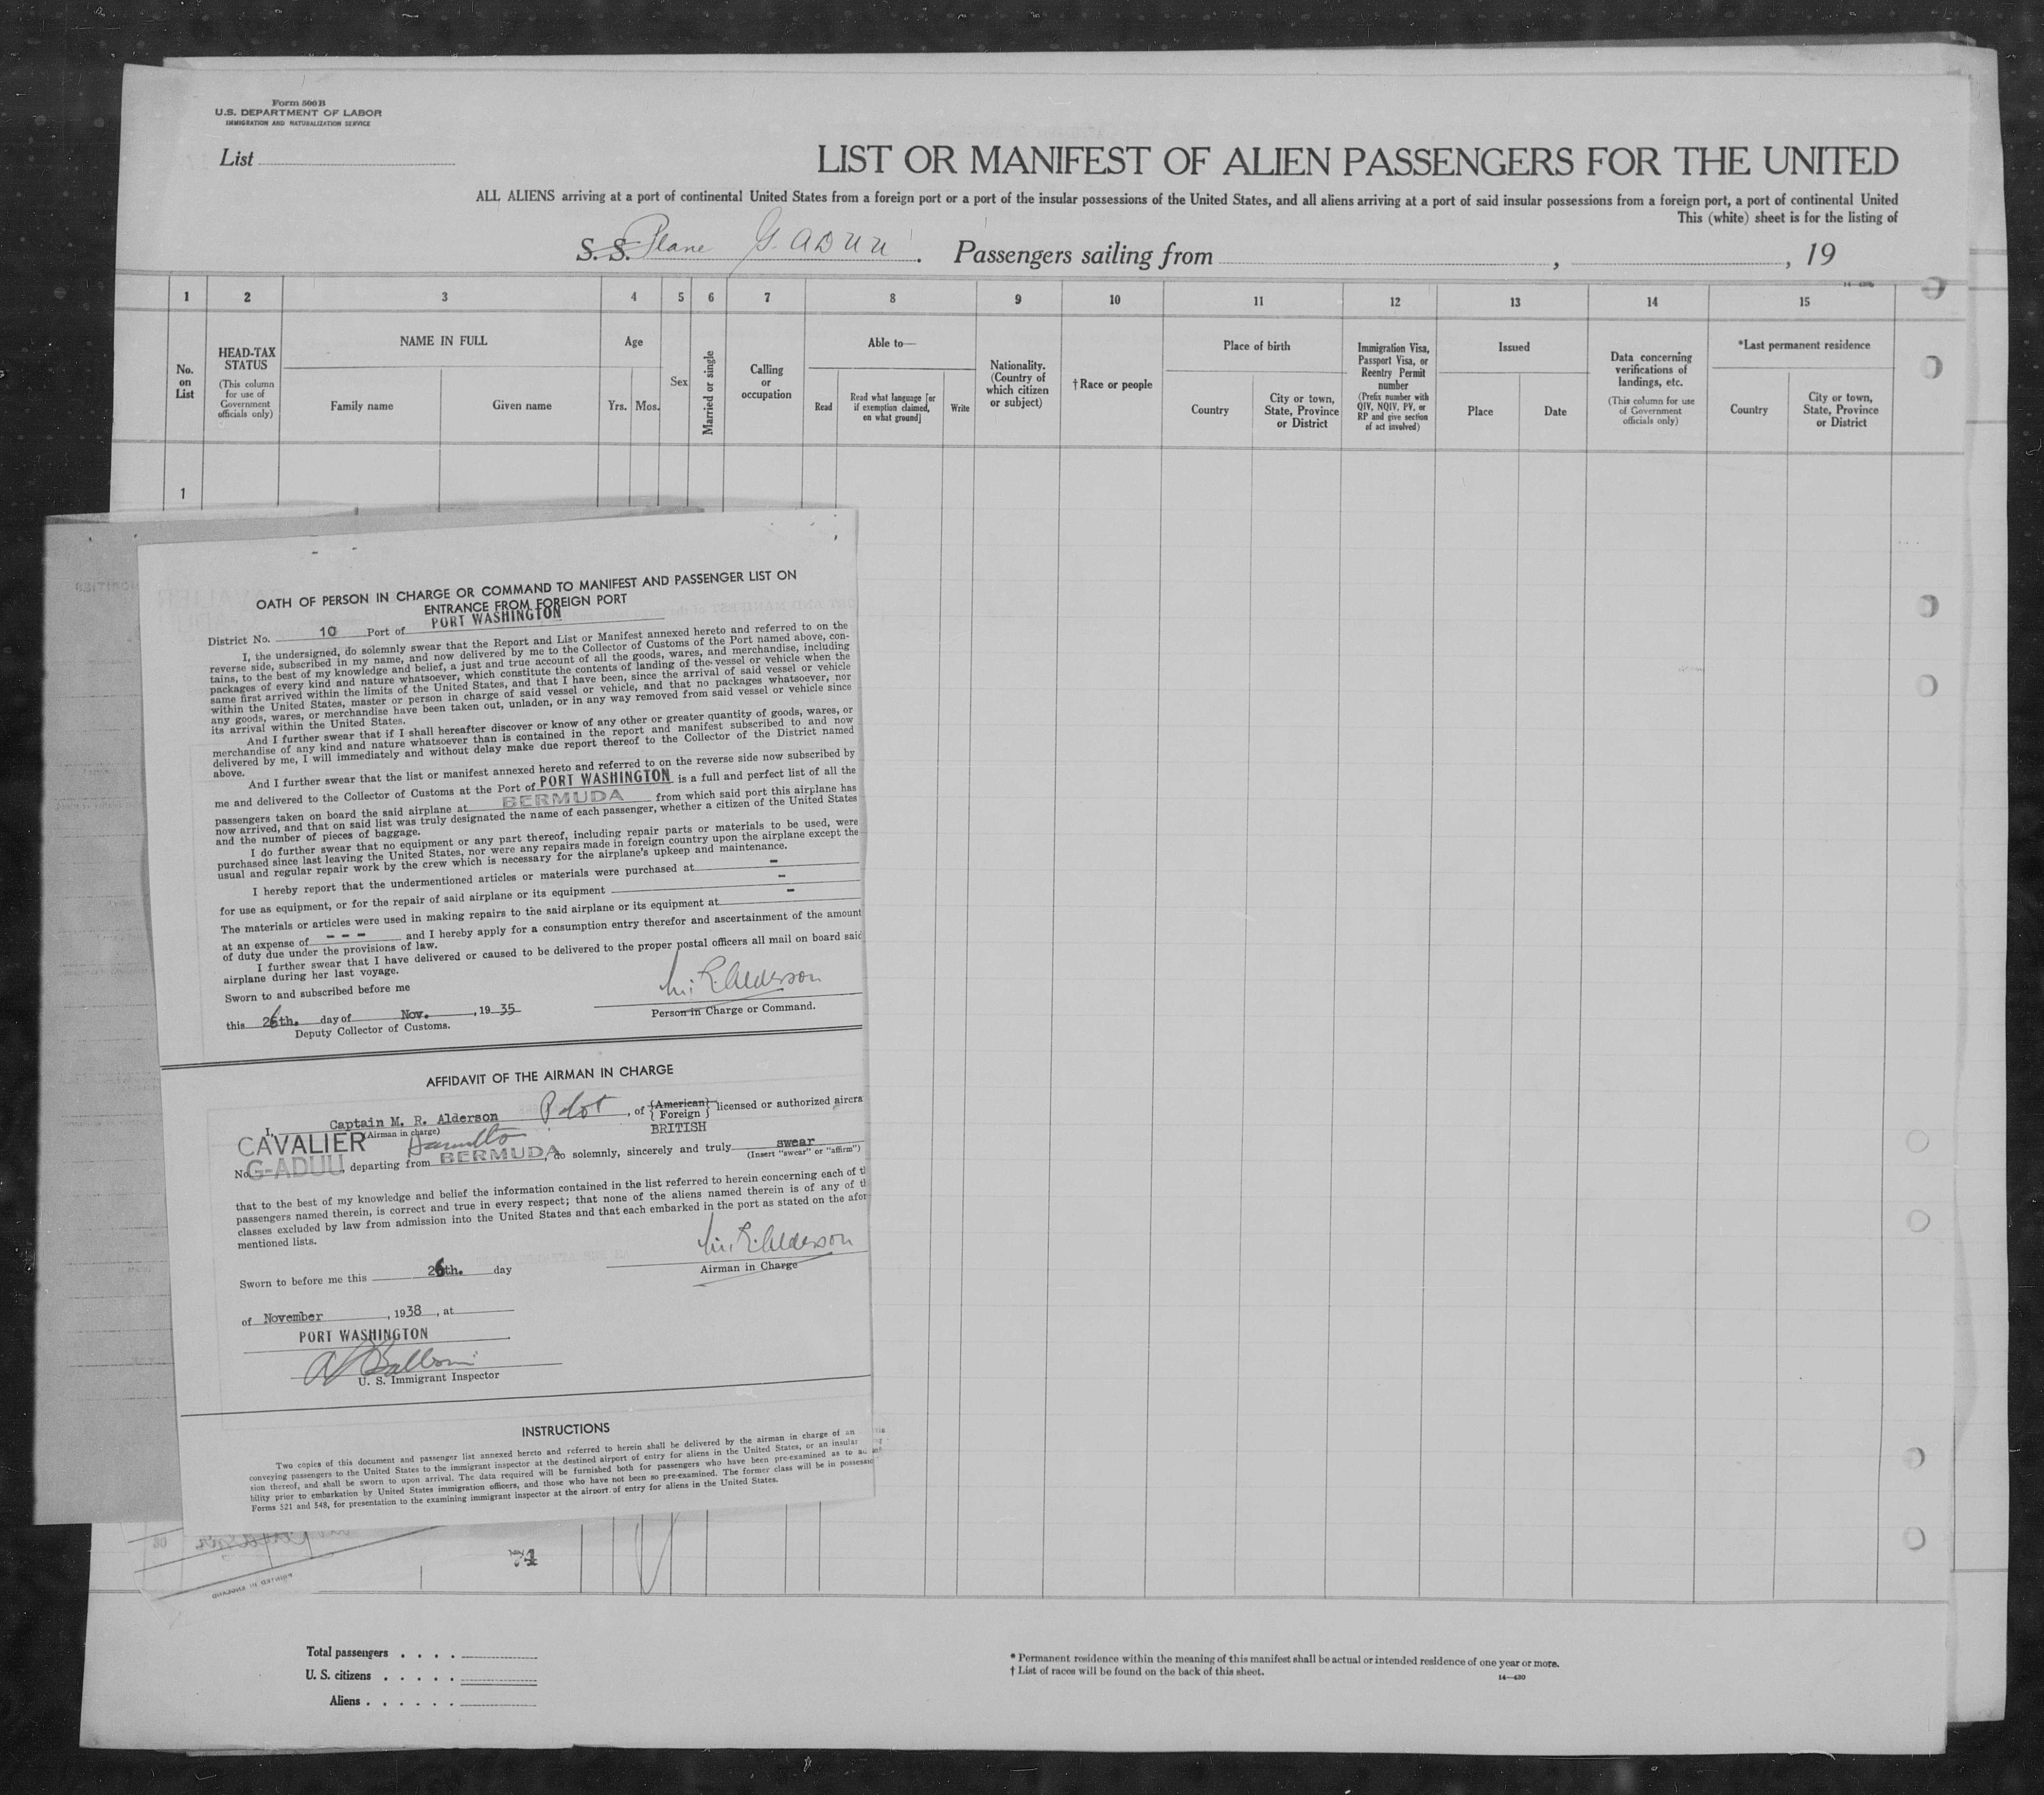 Form 500B
U.S. DEPARTMENT OF LABOR
IMMIGRATION AND NATURALIZATION SERVICE
List
LIST OR MANIFEST OF ALIEN PASSENGERS FOR THE UNITED
ALL ALIENS arriving at a port of continental United States from a foreign port or a port of the insular possessions of the United States, and all aliens arriving at a port of said insular possessions from a foreign port, a port of continental United
This (white) sheet is for the listing of
S. S. Plane G. ADUU. Passengers sailing from , , 19
1 2 3 4 5 6 7 8 9 10 11 12 13 14 15
No. on List
HEAD-TAX STATUS
(This column for use of Government officials only)
NAME IN FULL
Family name
Given name
Age
Yrs. Mos.
Sex
Married or single
Calling or occupation
Able to—
Read
Read what language [or if exemption claimed, on what ground]
Write
Nationality. (Country of which citizen or subject)
†Race or people
Place of birth
Country
City or town, State, Province or District
Immigration Visa, Passport Visa, or Reentry Permit number
(Prefix number with QIV, NQIV, PV, or RP and give section of act involved)
Issued
Place
Date
Data concerning verifications of landings, etc.
(This column for use of Government officials only)
*Last permanent residence
Country
City or town, State, Province or District
1
OATH OF PERSON IN CHARGE OR COMMAND TO MANIFEST AND PASSENGER LIST ON
ENTRANCE FROM FOREIGN PORT
District No. 10 Port of PORT WASHINGTON
I, the undersigned, do solemnly swear that the Report and List or Manifest annexed hereto and referred to on the
reverse side, subscribed in my name, and now delivered by me to the Collector of Customs of the Port named above, con-
tains, to the best of my knowledge and belief, a just and true account of all the goods, wares, and merchandise, including
packages of every kind and nature whatsoever, which constitute the contents of landing of the vessel or vehicle when the
same first arrived within the limits of the United States, and that I have been, since the arrival of said vessel or vehicle
within the United States, master or person in charge of said vessel or vehicle, and that no packages whatsoever, nor
any goods, wares, or merchandise have been taken out, unladen, or in any way removed from said vessel or vehicle since
its arrival within the United States.
And I further swear that if I shall hereafter discover or know of any other or greater quantity of goods, wares, or
merchandise of any kind and nature whatsoever than is contained in the report and manifest subscribed to and now
delivered by me, I will immediately and without delay make due report thereof to the Collector of the District named
above.
And I further swear that the list or manifest annexed hereto and referred to on the reverse side now subscribed by
me and delivered to the Collector of Customs at the Port of PORT WASHINGTON is a full and perfect list of all the
passengers taken on board the said airplane at BERMUDA from which said port this airplane has
now arrived, and that on said list was truly designated the name of each passenger, whether a citizen of the United States
and the number of pieces of baggage.
I do further swear that no equipment or any part thereof, including repair parts or materials to be used, were
purchased since last leaving the United States, nor were any repairs made in foreign country upon the airplane except the
usual and regular repair work by the crew which is necessary for the airplane's upkeep and maintenance.
I hereby report that the undermentioned articles or materials were purchased at -
for use as equipment, or for the repair of said airplane or its equipment -
The materials or articles were used in making repairs to the said airplane or its equipment at -
at an expense of - - - and I hereby apply for a consumption entry therefor and ascertainment of the amount
of duty due under the provisions of law.
I further swear that I have delivered or caused to be delivered to the proper postal officers all mail on board said
airplane during her last voyage.
Sworn to and subscribed before me
M. R. Alderson
this 26th. day of Nov. , 19 35
Person in Charge or Command.
Deputy Collector of Customs.
AFFIDAVIT OF THE AIRMAN IN CHARGE
I, Captain M. R. Alderson Pilot , of {American} {Foreign} licensed or authorized aircra
(Airman in charge)
BRITISH
CAVALIER Hamilton
No. G-ADUU, departing from BERMUDA, do solemnly, sincerely and truly swear
(Insert "swear" or "affirm")
that to the best of my knowledge and belief the information contained in the list referred to herein concerning each of t
passengers named therein, is correct and true in every respect; that none of the aliens named therein is of any of t
classes excluded by law from admission into the United States and that each embarked in the port as stated on the afor
mentioned lists.
M. R. Alderson
Sworn to before me this 26th. day
Airman in Charge
of November , 1938 , at
PORT WASHINGTON
U. S. Immigrant Inspector
INSTRUCTIONS
Two copies of this document and passenger list annexed hereto and referred to herein shall be delivered by the airman in charge of an
conveying passengers to the United States to the immigrant inspector at the destined airport of entry for aliens in the United States, or an insular
sion thereof, and shall be sworn to upon arrival. The data required will be furnished both for passengers who have been pre-examined as to ad
bility prior to embarkation by United States immigration officers, and those who have not been so pre-examined. The former class will be in possessi
Forms 521 and 548, for presentation to the examining immigrant inspector at the airport of entry for aliens in the United States.
30
74
PRINTED IN ENGLAND
Total passengers . . . .
U. S. citizens . . . . .
Aliens . . . . . .
* Permanent residence within the meaning of this manifest shall be actual or intended residence of one year or more.
† List of races will be found on the back of this sheet.
14—430